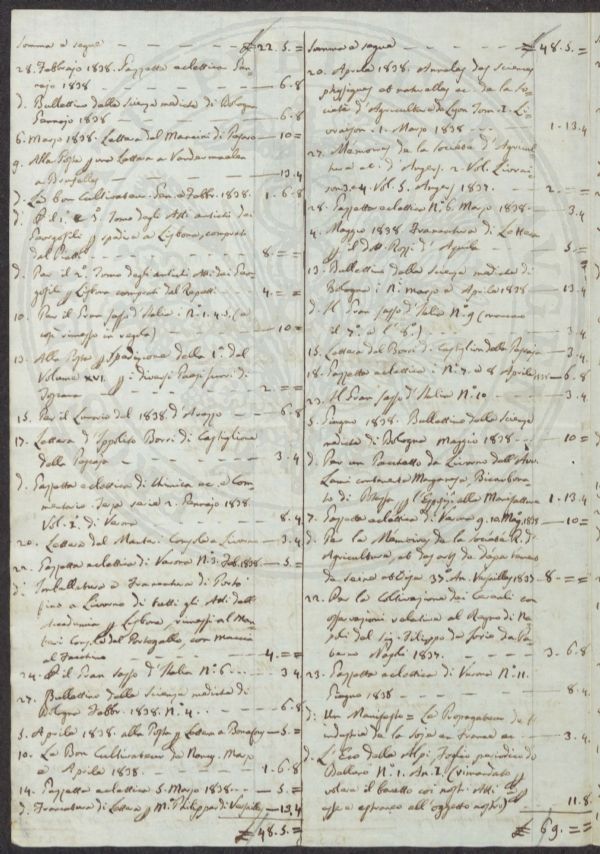 Somma e segue - - - £ 22. 5. =
28. Febbrajo 1838. Gazzetta eclettica Gen-
najo 1838 - 6. 8
d. Bullettino delle Scienze mediche di Bologna
Gennajo 1838 - 6. 8
6. Marzo 1838. Lettera del Mancini di Pesaro - 10 =
9. Alla Posta p una Lettera a Vandermaelen
a Bruxelles - 13. 4
d. Le bon Cultivateur. Gen. e Febbr. 1838. 1. 6. 8
d. P il 1. e 5° Tomo degli Atti antichi dei
Georgofili p spedire a Lisbona, comprati
dal Piatti - 8. = =
d. Per il 2° Tomo degli antichi Atti dei Geor-
gofili p Lisbona comprati dal Ragetti - 4. = =
10. Per il Gran Sasso d'Italia N. 1. 4. 5. (e
così rimesso in regola) - 10 =
13. Alla Posta p Spedizione della 1ª del
Volume XVI. p i diversi Paesi fuori di
Toscana - 2. = =
15. Per il Lunario del 1838 d'Arezzo - 6. 8
17. Lettera d'Ippolito Borsi di Castiglione
della Pescaja - 3. 4
d. Gazzetta eclettica di Chimica ec. e Com-
mentario. Terza serie 2. Gennajo 1838.
Vol. 1. di Verona - 8. 4
20. Lettera del Console a Livorno - 3. 4
22. Gazzetta eclettica di Verona N° 3. Feb. 1838. - 5. =
d. Imballatura e Francatura di Porto
fino a Livorno di tutti gli Atti dell'
Accademia p Lisbona, rimessi al
Console del Portogallo, con
al Facchino - 4. = =
24. P il Gran Sasso d'Italia N° 6 . . . 3 4
27. Bullettino delle Scienze mediche di
Bologna Febbr. 1838. N° 4. . . - 6. 8
5. Aprile 1838. alla Posta p Lettera a - 5. =
10. Le Bon Cultivateur de Nancy. Marzo
e Aprile 1838. - 1. 6. 8
14. Gazzetta eclettica 5. Marzo 1838. - 5. =
d. Francatura di Lettera p Mr Philippar di Versailles - 13. 4
£ 48. 5. =
Somma e segue - - - £ 48. 5. =
20. Aprile 1838. Annales des sciences
physiques et naturelles ec. de la So-
cieté d'Agriculture de Lyon Tom. 1. Li-
vraison. 1. Marzo 1838 - 1. 13. 4
27. Memoires de la Societé d'Agricul-
ture et. d'Angers. 2. Vol. Livrai-
son 3. e 4. Vol. 5. Angers 1837. 2. = =
28. Gazzetta eclettica N° 6. Marzo 1838. - 3. 4
4. Maggio 1838. Francatura di Lettera
p il Dott. Rozzi d'Aquila - 5. =
13. Bullettino delle Scienze mediche di
Bologna i N. marzo e Aprile 1838 - 13. 4
d. Il Gran Sasso d'Italia N° 9 (mancano
il 7° e l'8°) - 3. 4
15. Lettera del Borsi di Castiglion della Pescaja - 3. 4
18. Gazzetta eclettica i N. 7. e 8 Aprile 1838 - 6. 8
23. Il Gran Sasso d'Italia N° 10 - 3. 4
5. Giugno 1838. Bullettino delle Scienze
mediche di Bologna Maggio 1838 - 10 =
d. Per un Pacchetto da Livorno dell'Avv.
contenente Manganese, Bicarbona-
to di Potassa, p alla Manifattura 1. 13. 4
7. Gazzetta eclettica di Verona 9. 10. Mag. 1838 - 10 =
d. Per le Memoires de la Societé R. di
Agriculture, et des arts de Departement
de Seine et Oise 37° An. Versailles 1837 - 8. = =
22. Per la Coltivazione dei Cereali con
osservazioni relative al Regno di Na-
poli del Sig. Filippo de
Napoli 1837. - 3. 6. 8
23. Gazzetta eclettica di Verona N° 11.
Giugno 1838 - 8. 4
d. Un Manifesto = Le Propagateur de l'
industrie de la Soie en France ec - 3. 4
d. L'Eco delle Alpi Foglio periodico di
Belluno N° 1. An. I. (rimandato p
coi nostri Atti
e estraneo all'oggetto nostro) 11. 8.
£ 69. = =